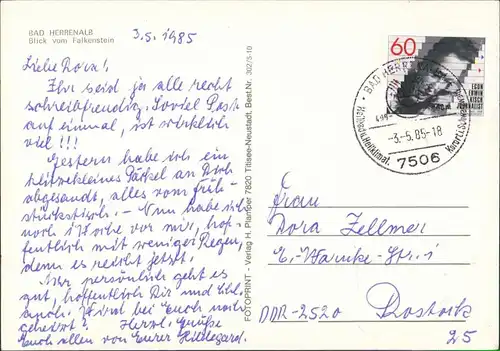 BAD HERRENALB
Blick vom Falkenstein
3.5.1985
Liebe Dora!
Ihr seid ja alle recht
schreibfreudig. Soviel Post
auf einmal, ist wirklich
viel!!!
Gestern habe ich ein
klitzekleines Päckel an Dich
abgesandt, alles vom Früh-
stückstisch. – Nun habe ich
noch 1 Woche vor mir, hof-
fentlich mit weniger Regen,
denn es reicht jetzt.
Mir persönlich geht es
gut, hoffentlich Dir und
auch. Wird bei Euch noch
geheizt? Herzl. Grüße
Euch allen von Eurer Hildegard.
FOTOPRINT - Verlag H. Pfampfer 7820 Titisee-Neustadt, Best.Nr. 302/5-10
60
EGON
ERWIN
KISCH
JOURNALIST
BAD HERRENALB
-3.-5.85-18
7506
Heilbad, Heilklimat. Kurort i. Schwarzwald
Frau
Dora Zellmer
E.-Warnke-Str. 1
DDR-2520 Rostock
25